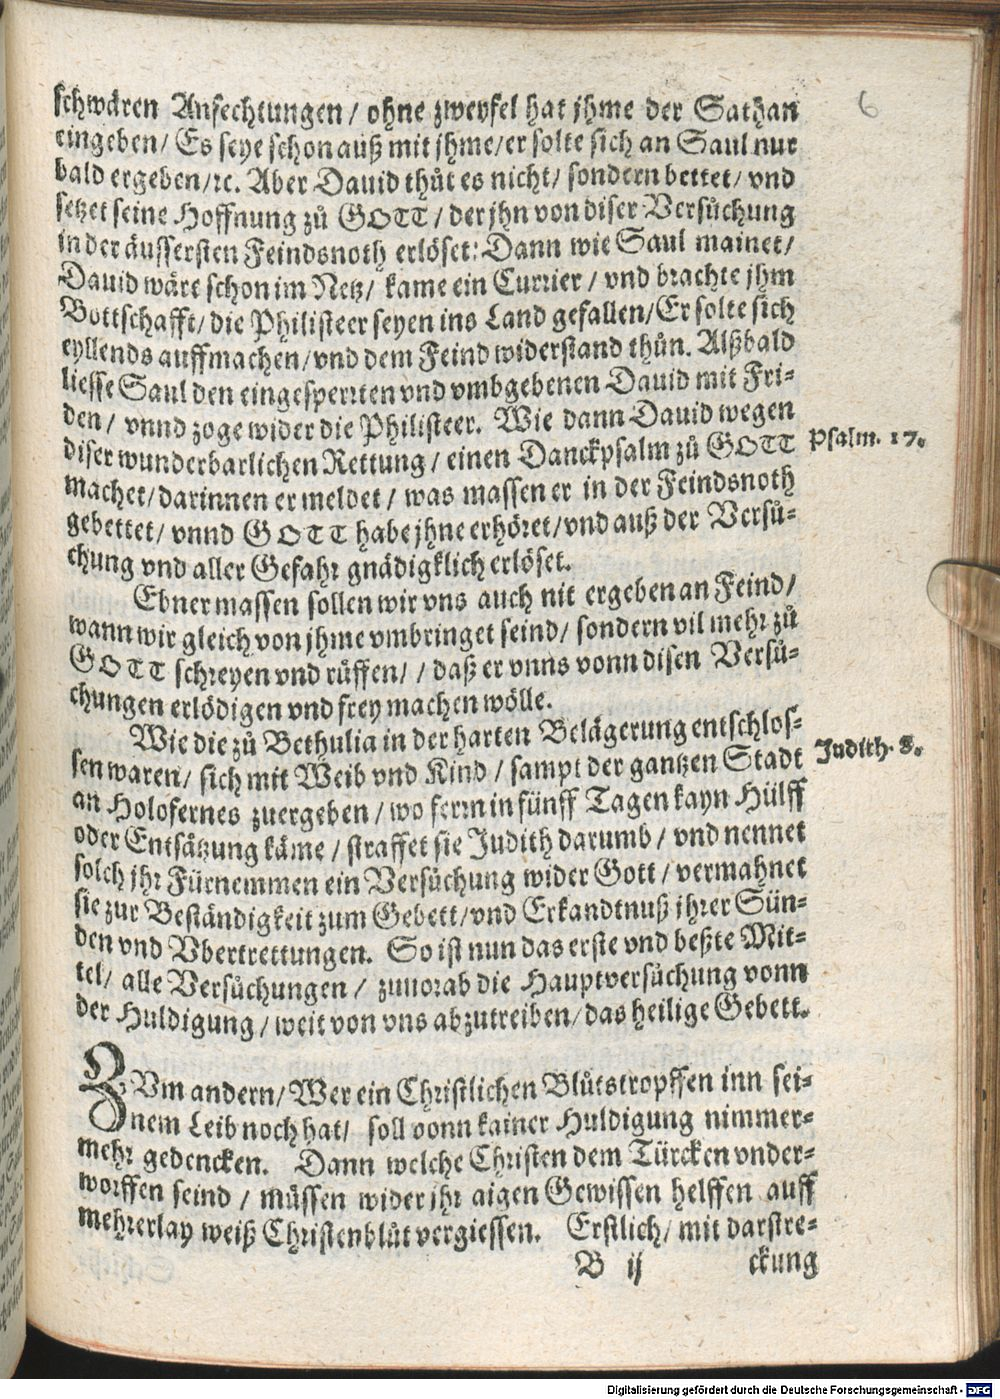 6
schwären Anfechtungen / ohne zweyfel hat jhme der Sathan
eingeben / Es seye schon auß mit jhme / er solte sich an Saul nur
bald ergeben / ꝛc. Aber Dauid thůt es nicht / sondern bettet / vnd
setzet seine Hoffnung zů GOTT / der jhn von diser Versůchung
in der äussersten Feindsnoth erlöset: Dann wie Saul mainet /
Dauid wäre schon im Netz / kame ein Currier / vnd brachte jhm
Bottschafft / die Philisteer seyen ins Land gefallen / Er solte sich
eyllends auffmachen / vnd dem Feind widerstand thůn. Alßbald
liesse Saul den eingesperrten vnd vmbgebenen Dauid mit Fri-
den / vnnd zoge wider die Philisteer. Wie dann Dauid wegen
diser wunderbarlichen Rettung / einen Danckpsalm zů GOTT
Psalm. 17.
machet / darinnen er meldet / was massen er in der Feindsnoth
gebettet / vnnd GOTT habe jhne erhöret / vnd auß der Versů-
chung vnd aller Gefahr gnädigklich erlöset.
Ebner massen sollen wir vns auch nit ergeben an Feind /
wann wir gleich von jhme vmbringet seind / sondern vil mehr zů
GOTT schreyen vnd růffen / / daß er vnns vonn disen Versů-
chungen erlödigen vnd frey machen wölle.
Wie die zů Bethulia in der harten Belägerung entschlos-
Judith. 8.
sen waren / sich mit Weib vnd Kind / sampt der gantzen Stadt
an Holofernes zuergeben / wo ferrn in fünff Tagen kayn Hülff
oder Entsätzung käme / straffet sie Judith darumb / vnd nennet
solch jhr Fürnemmen ein Versůchung wider Gott / vermahnet
sie zur Beständigkeit zum Gebett / vnd Erkandtnuß jhrer Sün-
den vnd Vbertrettungen. So ist nun das erste vnd beßte Mit-
tel / alle Versůchungen / zuuorab die Hauptversůchung vonn
der Huldigung / weit von vns abzutreiben / das heilige Gebett.
ZVm andern / Wer ein Christlichen Blůtstropffen inn sei-
nem Leib noch hat / soll vonn kainer Huldigung nimmer-
mehr gedencken. Dann welche Christen dem Türcken vnder-
worffen seind / müssen wider jhr aigen Gewissen helffen auff
mehrerlay weiß Christenblůt vergiessen. Erstlich / mit darstre-
B ij ckung
Digitalisierung gefördert durch die Deutsche Forschungsgemeinschaft - DFG